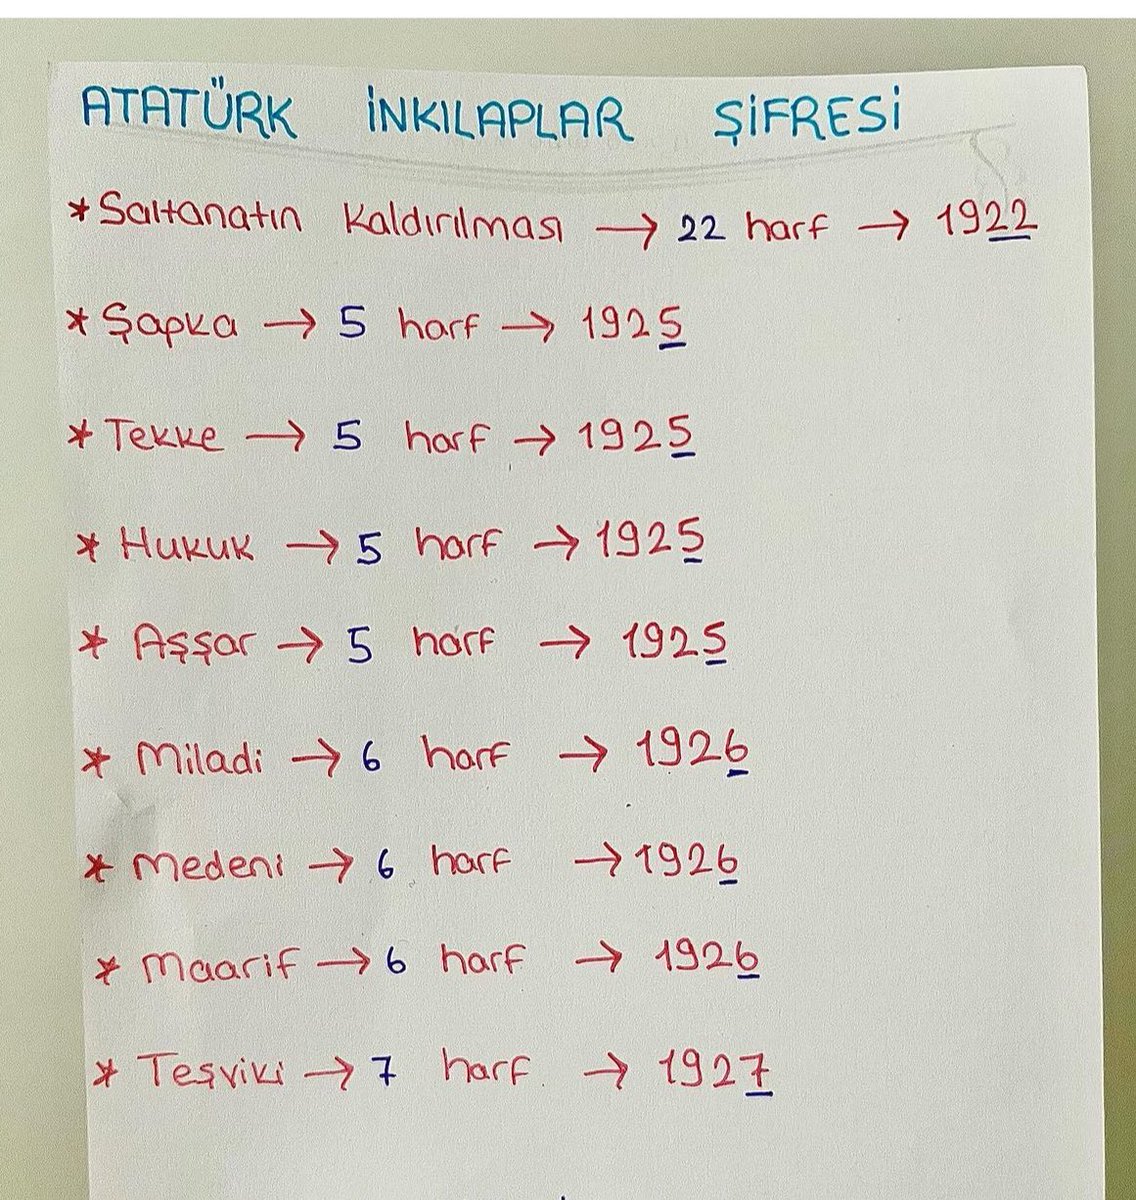 ATATÜRK İNKILAPLAR ŞİFRESİ
* Saltanatın Kaldırılması → 22 harf → 1922
* Şapka → 5 harf → 1925
* Tekke → 5 harf → 1925
* Hukuk → 5 harf → 1925
* Aşşar → 5 harf → 1925
* Miladi → 6 harf → 1926
* Medeni → 6 harf → 1926
* Maarif → 6 harf → 1926
* Teşviki → 7 harf → 1927